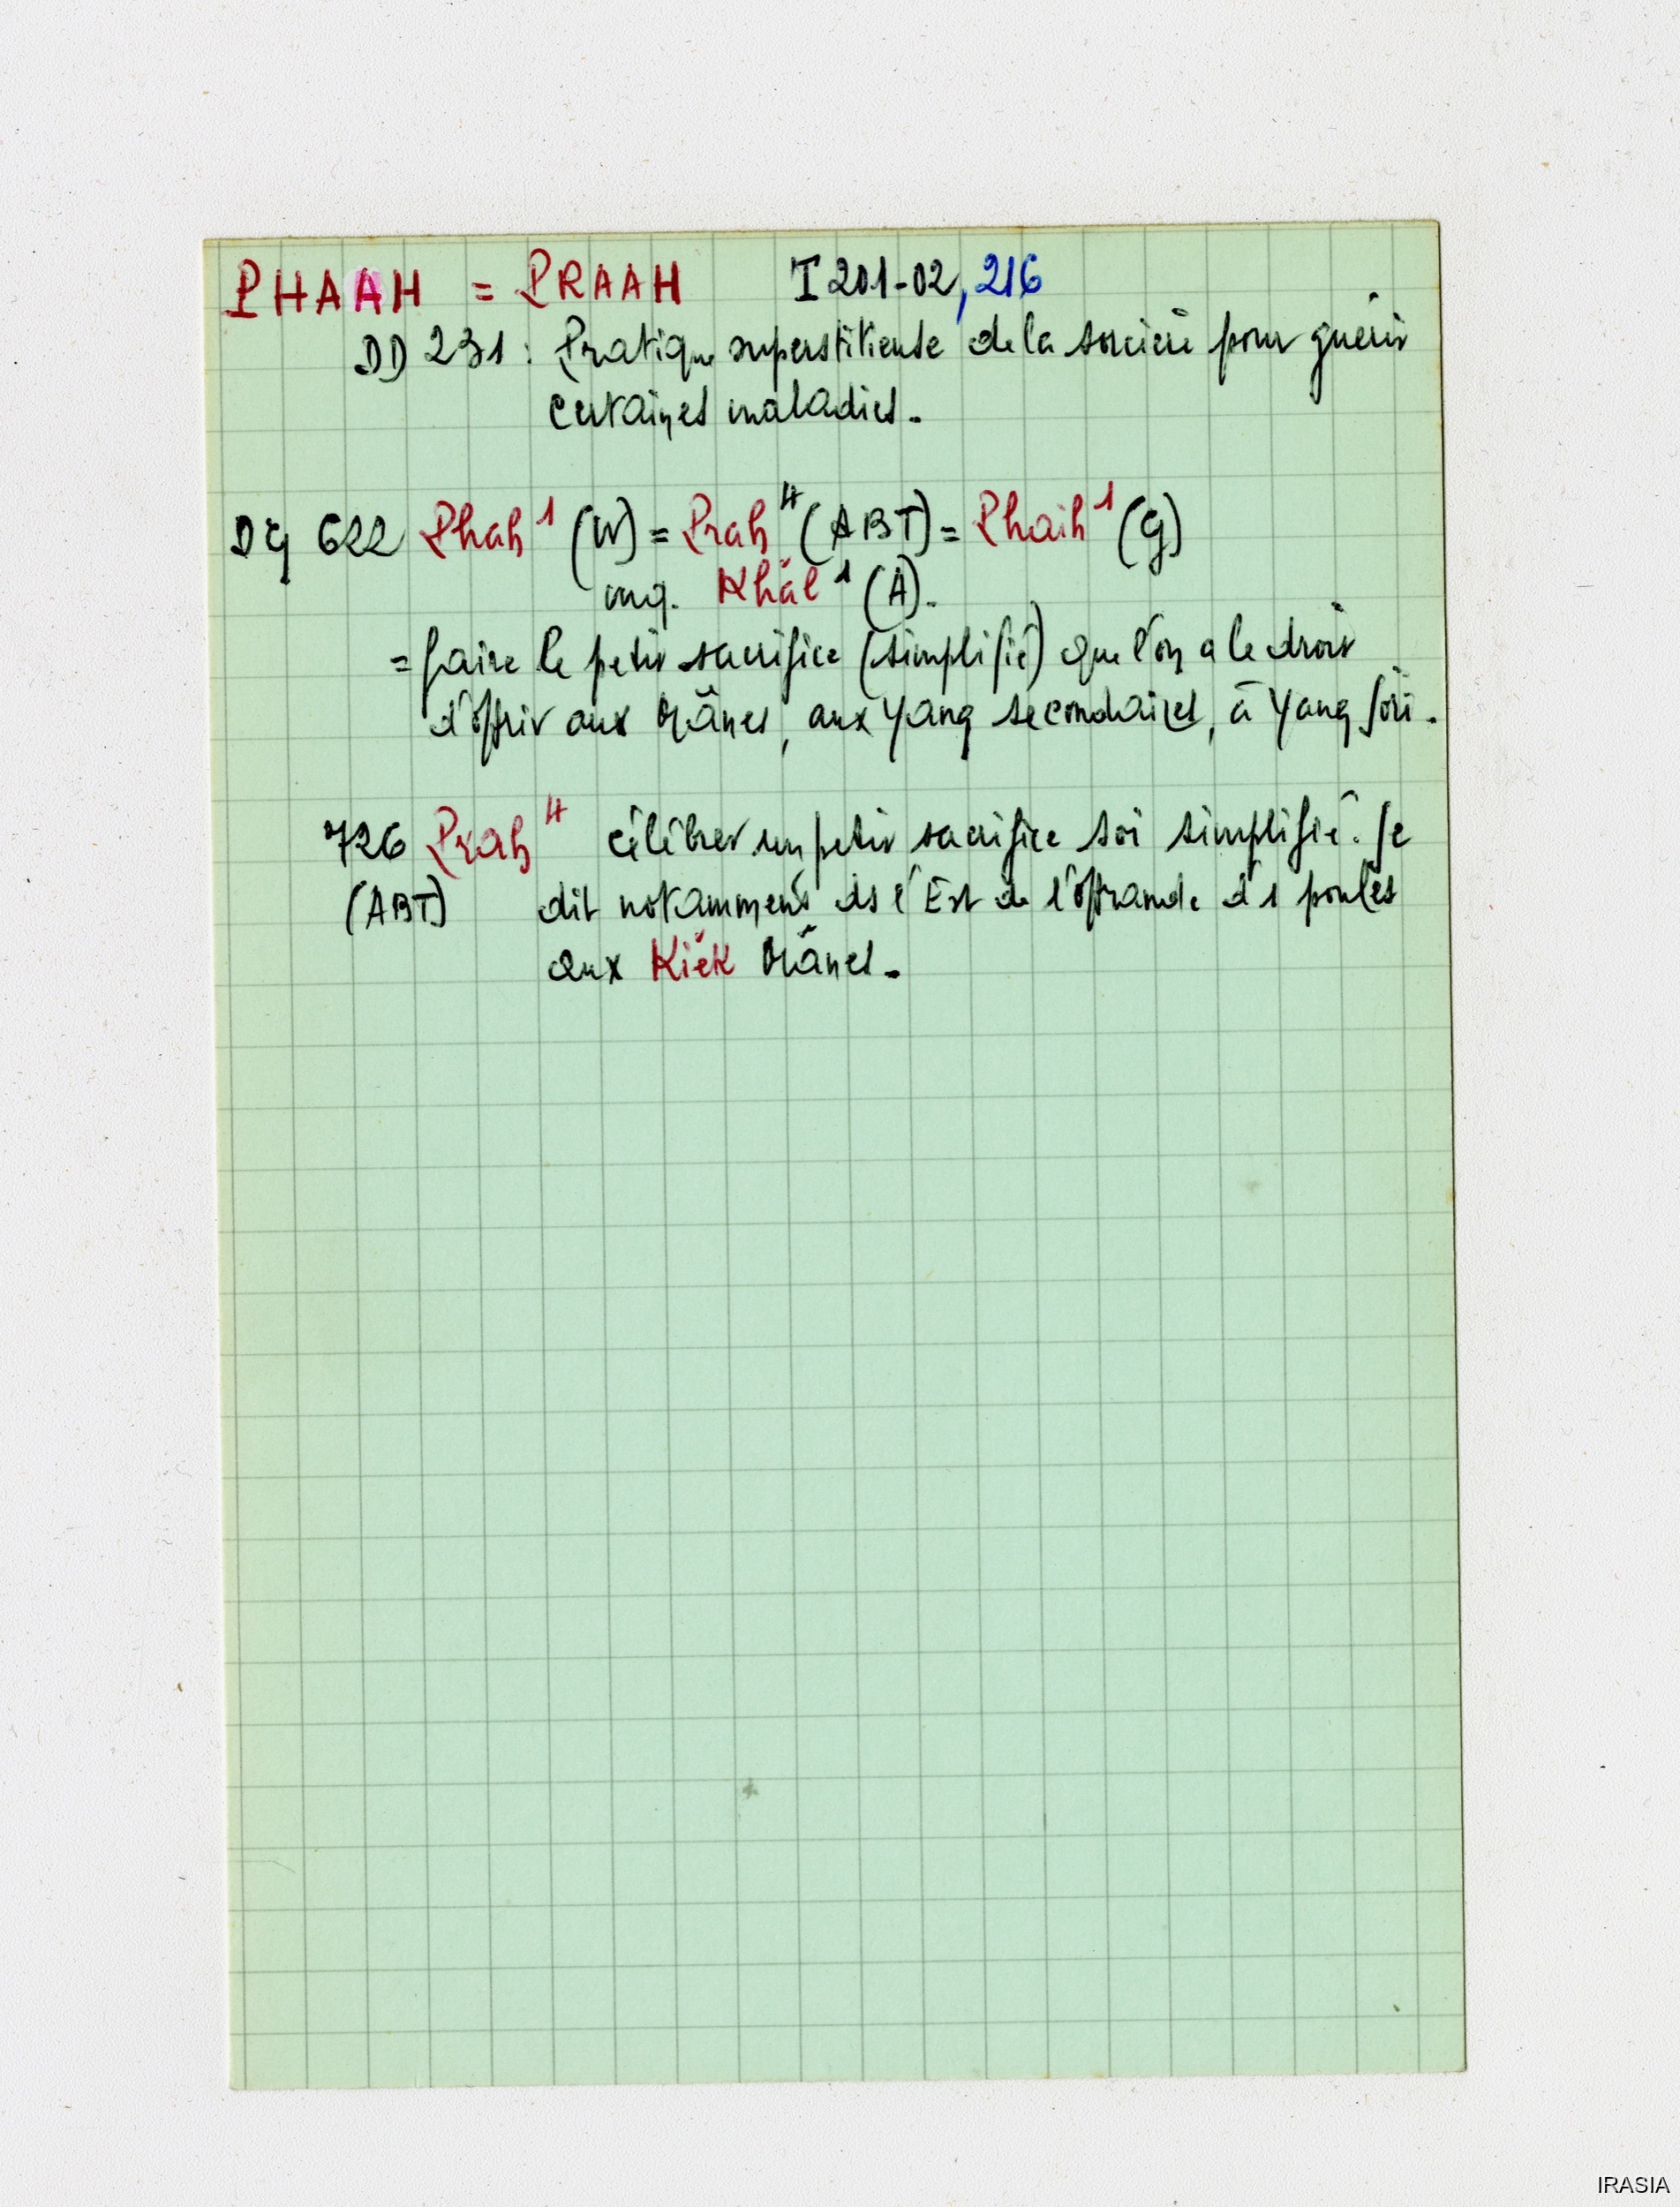 PHAAH = PRAAH I 201-02, 216
DD 231 : Pratique superstitieuse de la sorcière pour guérir
certaines maladies.
DG 622 Phah¹ (W) = Prah⁴ (ABT) = Phaih¹ (G)
mq. Khăl¹ (A).
= faire le petit sacrifice (simplifié) que l'on a le droit
d'offrir aux Mânes, aux Yang secondaires, à Yang Söri.
726 Prah⁴ célébrer un petit sacrifice soi simplifié. Se
(ABT) dit notamment ds l'Est de l'offrande d'1 poules
aux Kiĕk Mânes.
IRASIA